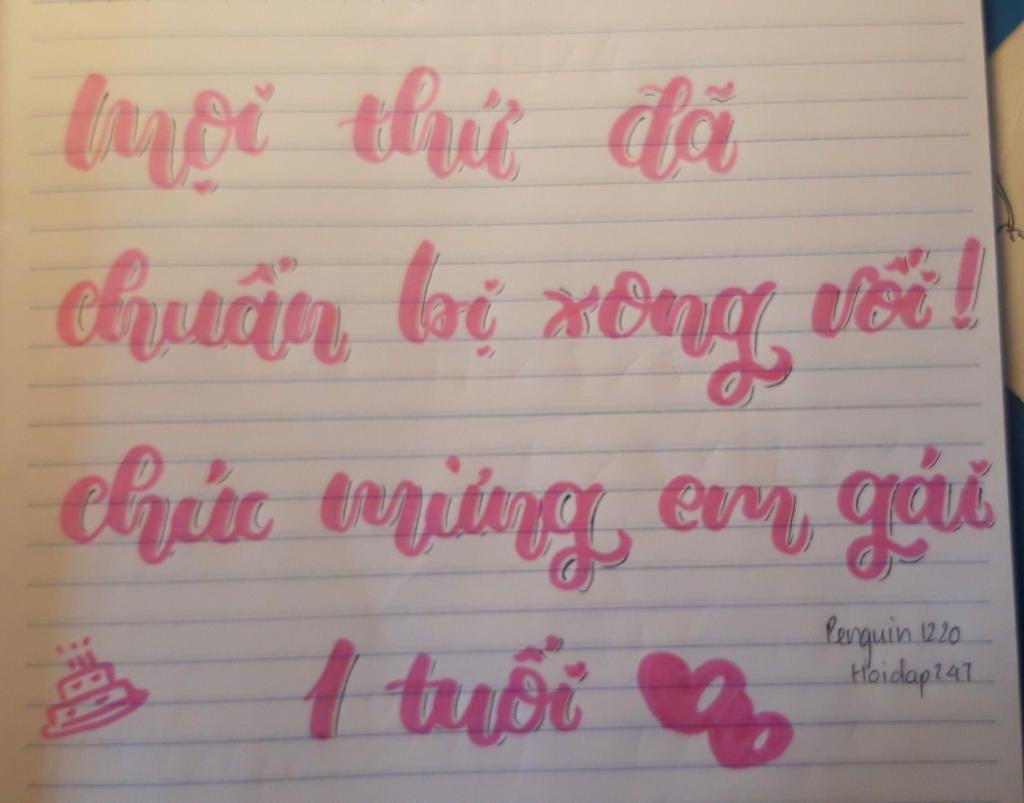 mọi thứ đã
chuẩn bị xong rồi!
chúc mừng em gái
1 tuổi
Penguin 1220
Hoidap247